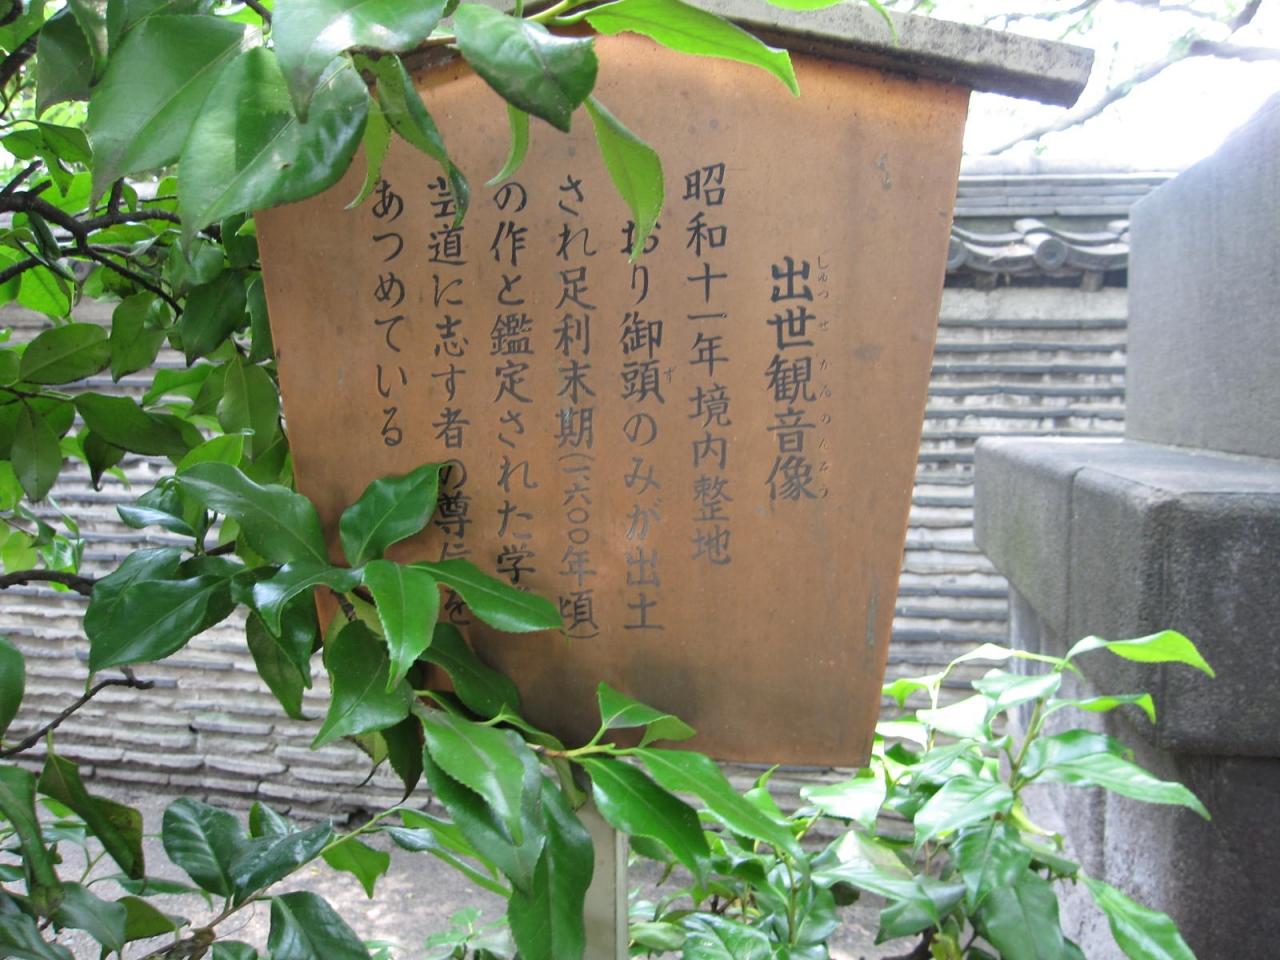 出世観音像
しゅつせかゐのんぞう
昭和十一年境内整地
おり御頭のみが出土
ず
され足利末期(一、六〇〇年頃)
の作と鑑定された学
芸道に志す者の尊信を
あつめている